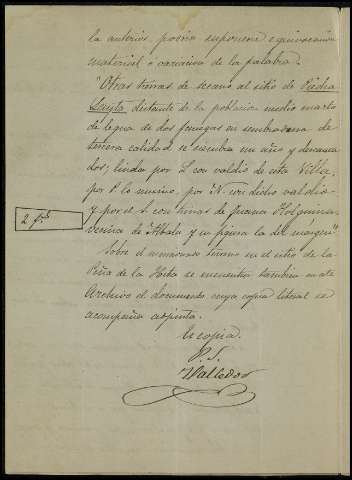 la anterior podria suponerse equivocacion
material o variacion de la palabra.
"Otras tierras de secano al sitio de Piedra
Santa, distante de la poblacion medio cuarto
de legua de dos fanegas en sembradura de
tercera calidad se siembra un año y descansa
dos; linda por L. con valdio de esta Villa,
por P. lo mismo, por N. con dicho valdio
y por el S. con tierras de Juana Holguin
vecina de Albalá y su figura la del margen"
2 fs
Sobre el mencionado terreno en el sitio de la
Peña de la Horca se encuentra tambien en este
Archivo el documento cuya copia literal se
acompaña adjunta.
Es copia.
P. S.